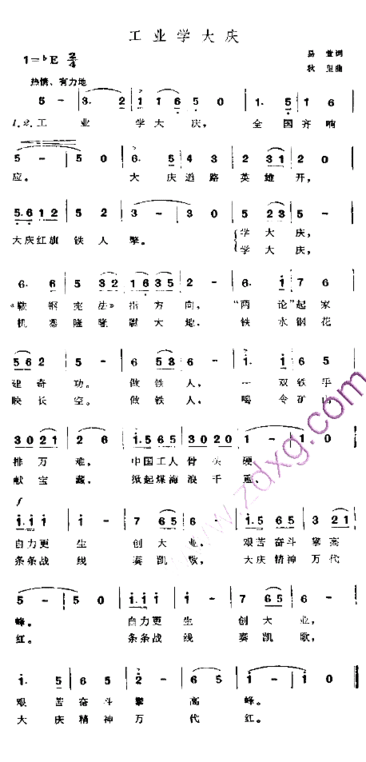 工业学大庆
1=♭E 2/4
易萱词
秋里曲
热情、有力地
5 - 3. 2 1 1 6 5 0 1. 6 5 1
1.2.工业学大庆，全国齐响
5 - 5 0 6. 5 4 3 2 3 1 2 0
应。大庆道路英雄开，
5.6 1 2 5 2 3 - 3 0 5 2 3 5 -
大庆红旗铁人擎。学大庆，
学大庆，
6. 6 5 3 2 1 6 3 5 2 6. 1 7 6
《鞍钢宪法》指方向，“两论”起家
机器隆隆震大地，铁水钢花
5 6 2 5 - 6 5 3 6 - 1. 1 6 5
建奇功。做铁人，一双铁手
映长空。做铁人，喝令矿山
3 0 2 1 2 6 1.5 6 5 3 0 2 0 1 - 1 0
排万难，中国工人骨头硬
献宝藏，掀起煤海浪千重，
f
1.1 1 1 - 7 6 5 6 - 1.5 6 5 3 2 1
自力更生创大业，艰苦奋斗攀高
条条战线奏凯歌，大庆精神万代
5 - 5 0 1.1 1 1 - 2 6 5 6 -
峰。自力更生创大业，
红。条条战线奏凯歌，
1. 5 6 5 6 5 2 - 1 - 1 0
艰苦奋斗攀高峰。
大庆精神万代红。
www.zdxg.com